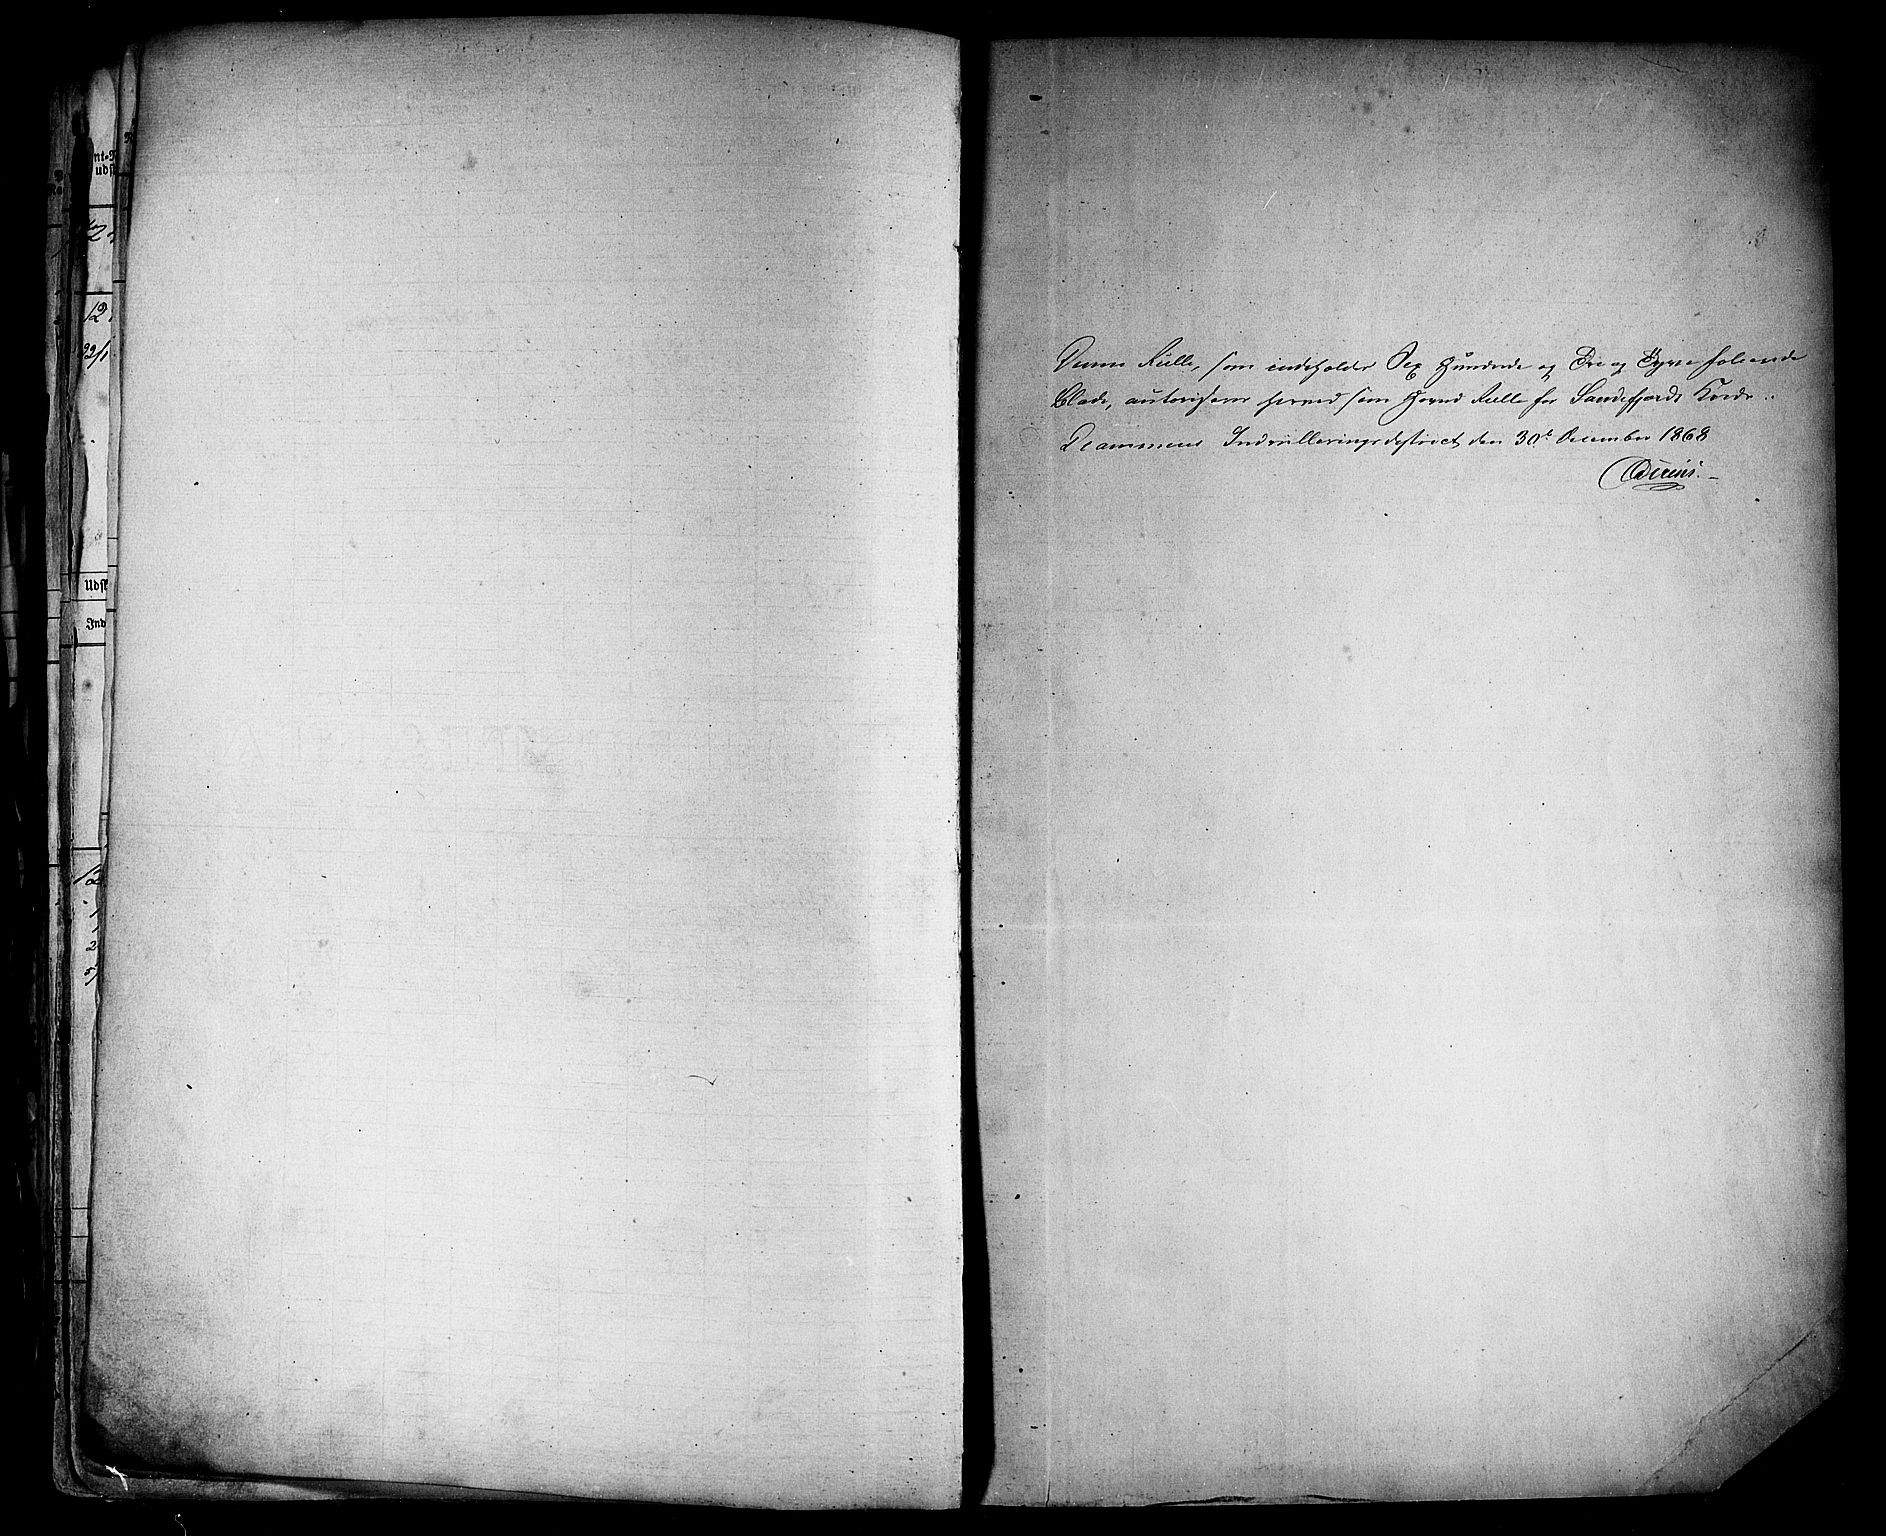 nt-N
udst
12
22/1
Udsk
Ind
Denne Rulle, som indeholder Sex Hundrede og Tre og Tyve folierede
Blade, autoriseres herved som Hoved Rulle for Sandefjords Kreds.
Drammens Indrulleringsdistrict den 30te December 1868